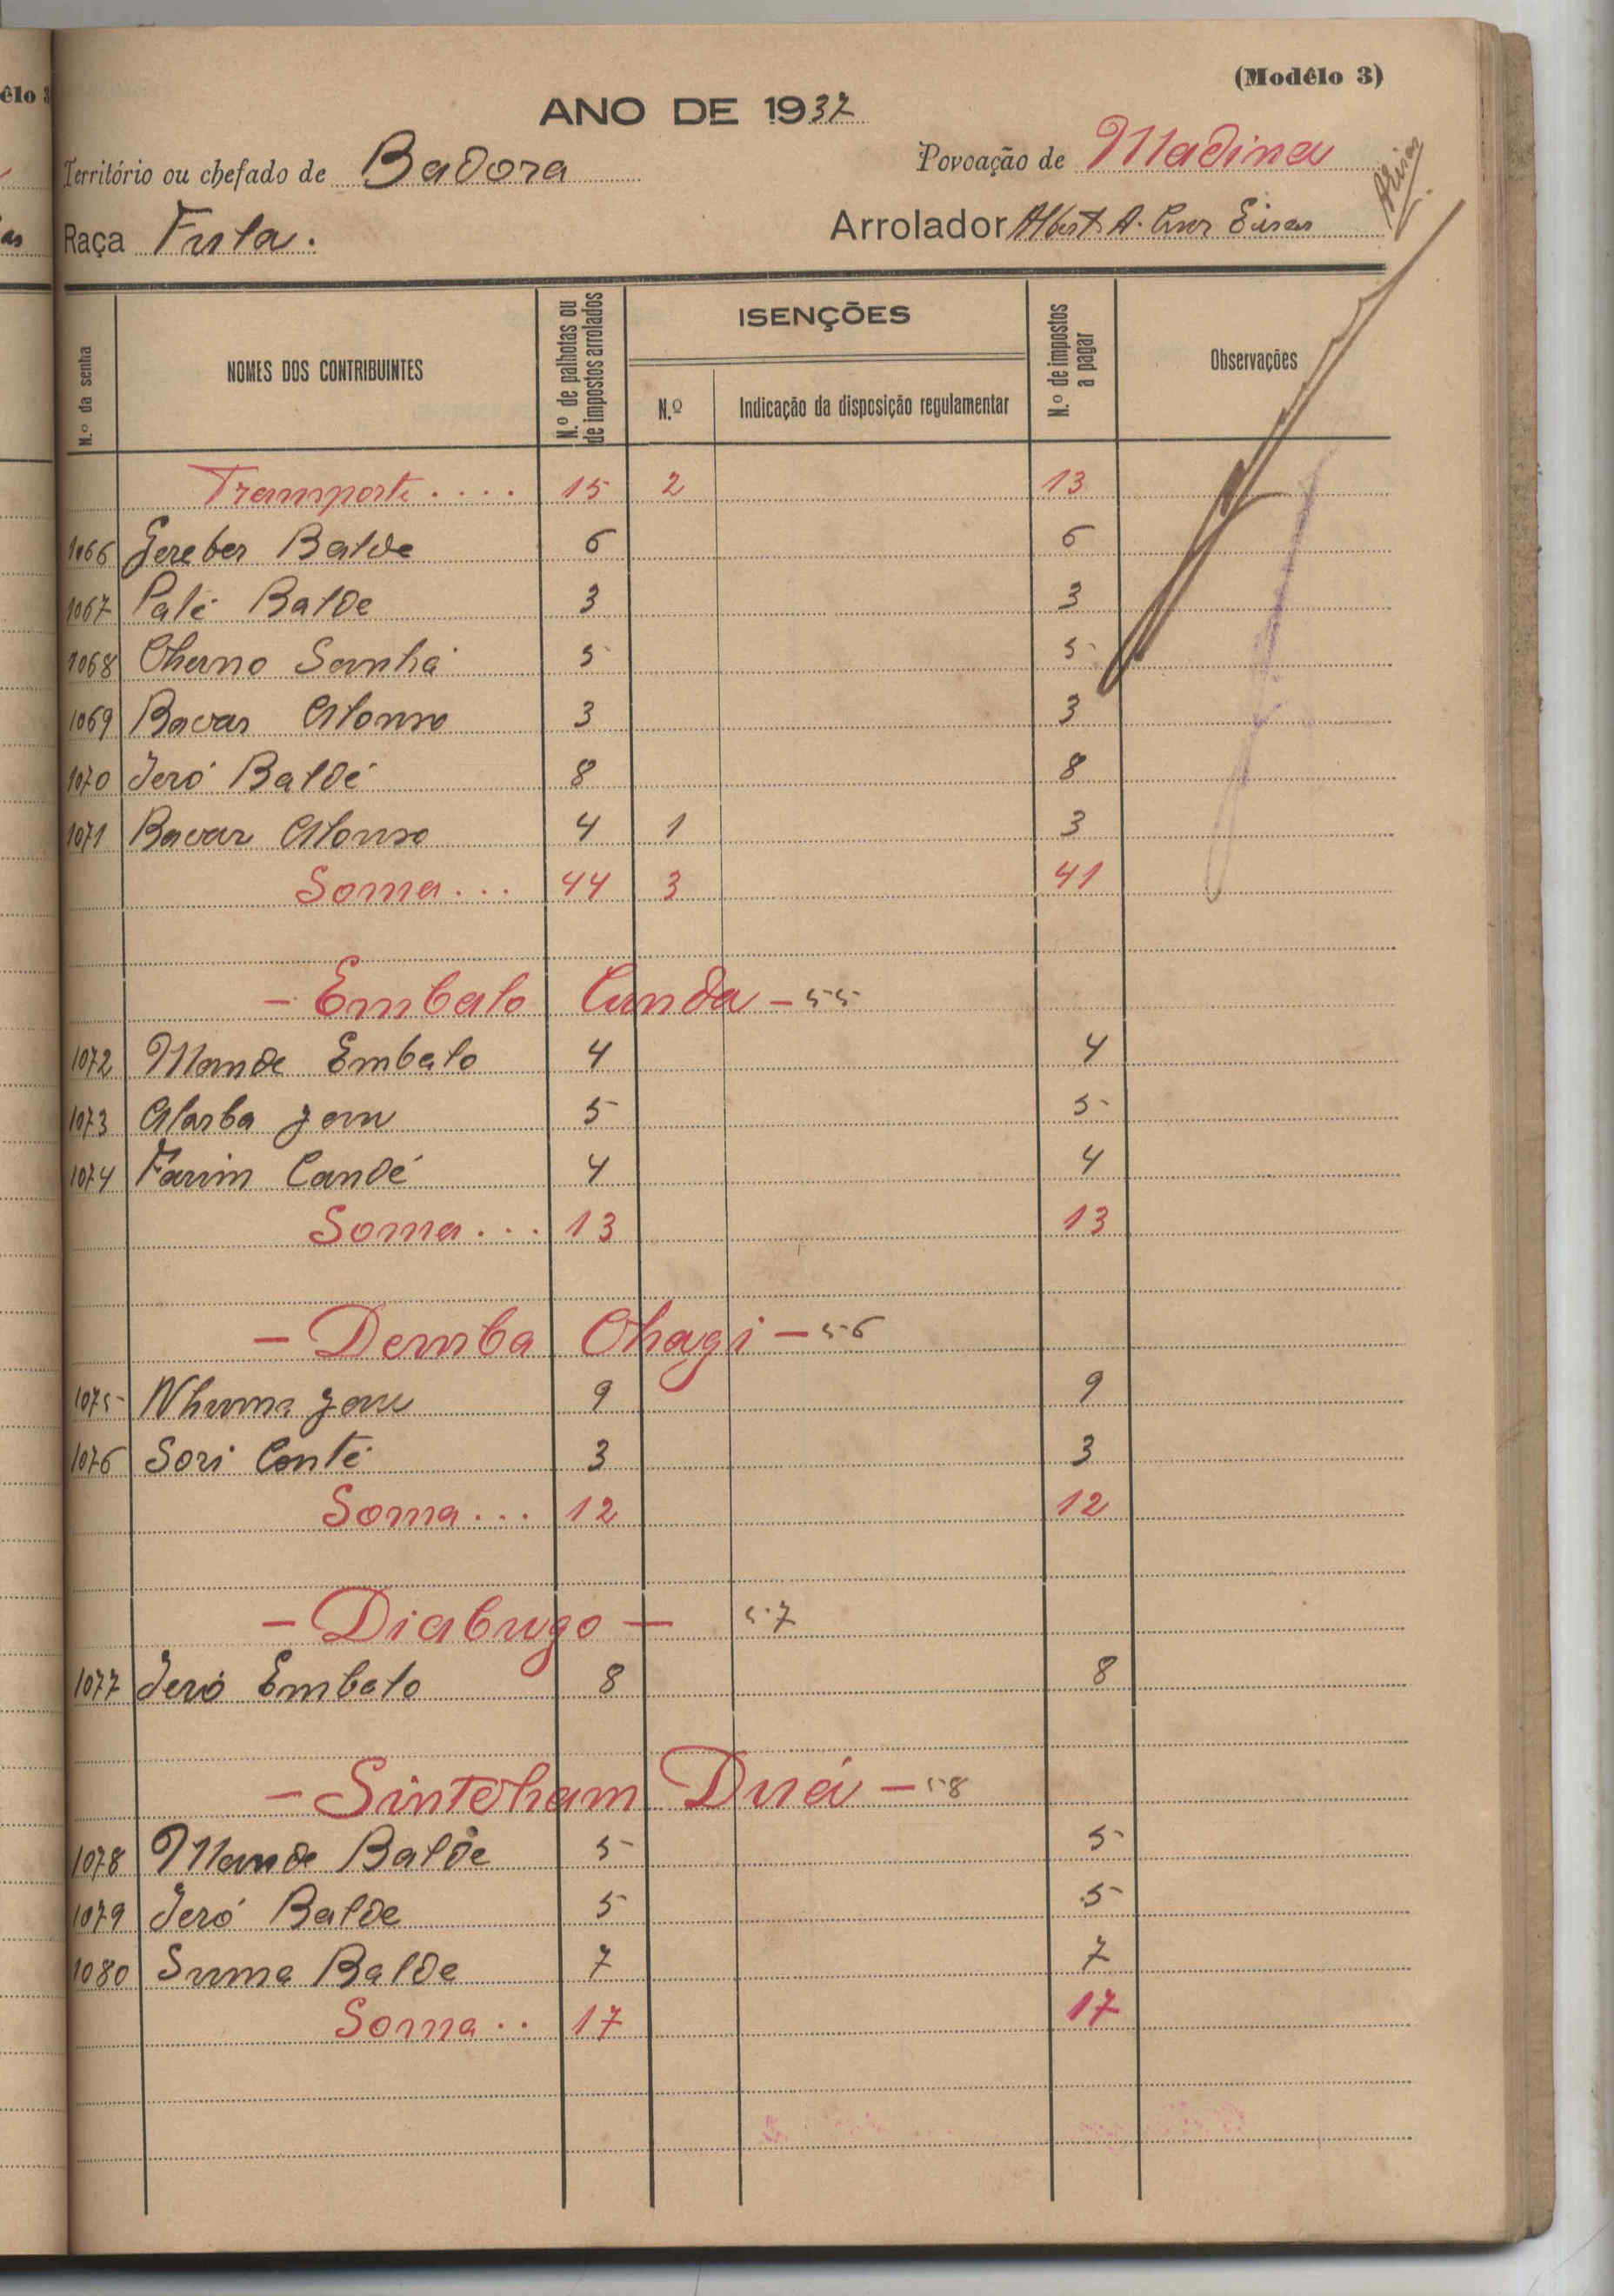 (Modêlo 3)
ANO DE 1937
Território ou chefado de Badora
Povoação de Madina
Raça Fula.
Arrolador A.
N.º da senha
NOMES DOS CONTRIBUINTES
N.º de palhotas ou de impostos arrolados
ISENÇÕES
N.º
Indicação da disposição regulamentar
N.º de impostos a pagar
Observações
Transporte . . . . 15 2 13
1066 Gereber Balde 6 6
1067 Palé Balde 3 3
1068 Cherno Sanhá 5 5
1069 Bacar 3 3
1070 Jeró Baldé 8 8
1071 Bacar 4 1 3
Soma . . . 44 3 41
- Embalo Cunda - 55
1072 Mande Embalo 4 4
1073 Alarba Jau 5 5
1074 Farim Candé 4 4
Soma . . . 13 13
- Demba Chagi - 56
1075 Nhuma Jau 9 9
1076 Sori Conté 3 3
Soma . . . 12 12
- Diabugo - 57
1077 Jeró Embalo 8 8
- Sintcham Duá - 58
1078 Mande Balde 5 5
1079 Jeró Balde 5 5
1080 Suma Balde 7 7
Soma . . 17 17